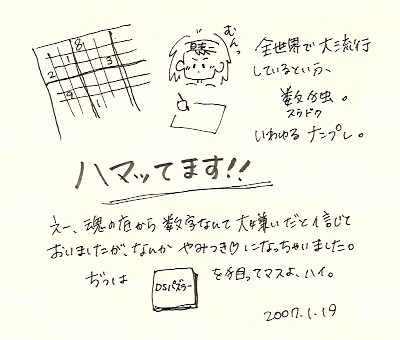 8
1 3
2
9 1
むんっ
全世界で大流行
しているという、
数独。
スウドク
いわゆるナンプレ。
ハマッてます!!
えー、魂の底から数字なんて大嫌いだと信じて
おいましたが、なんかやみつき♡になっちゃいました。
ぢつは DSパズラー を狙ってマスよ、ハイ。
2007.1.19